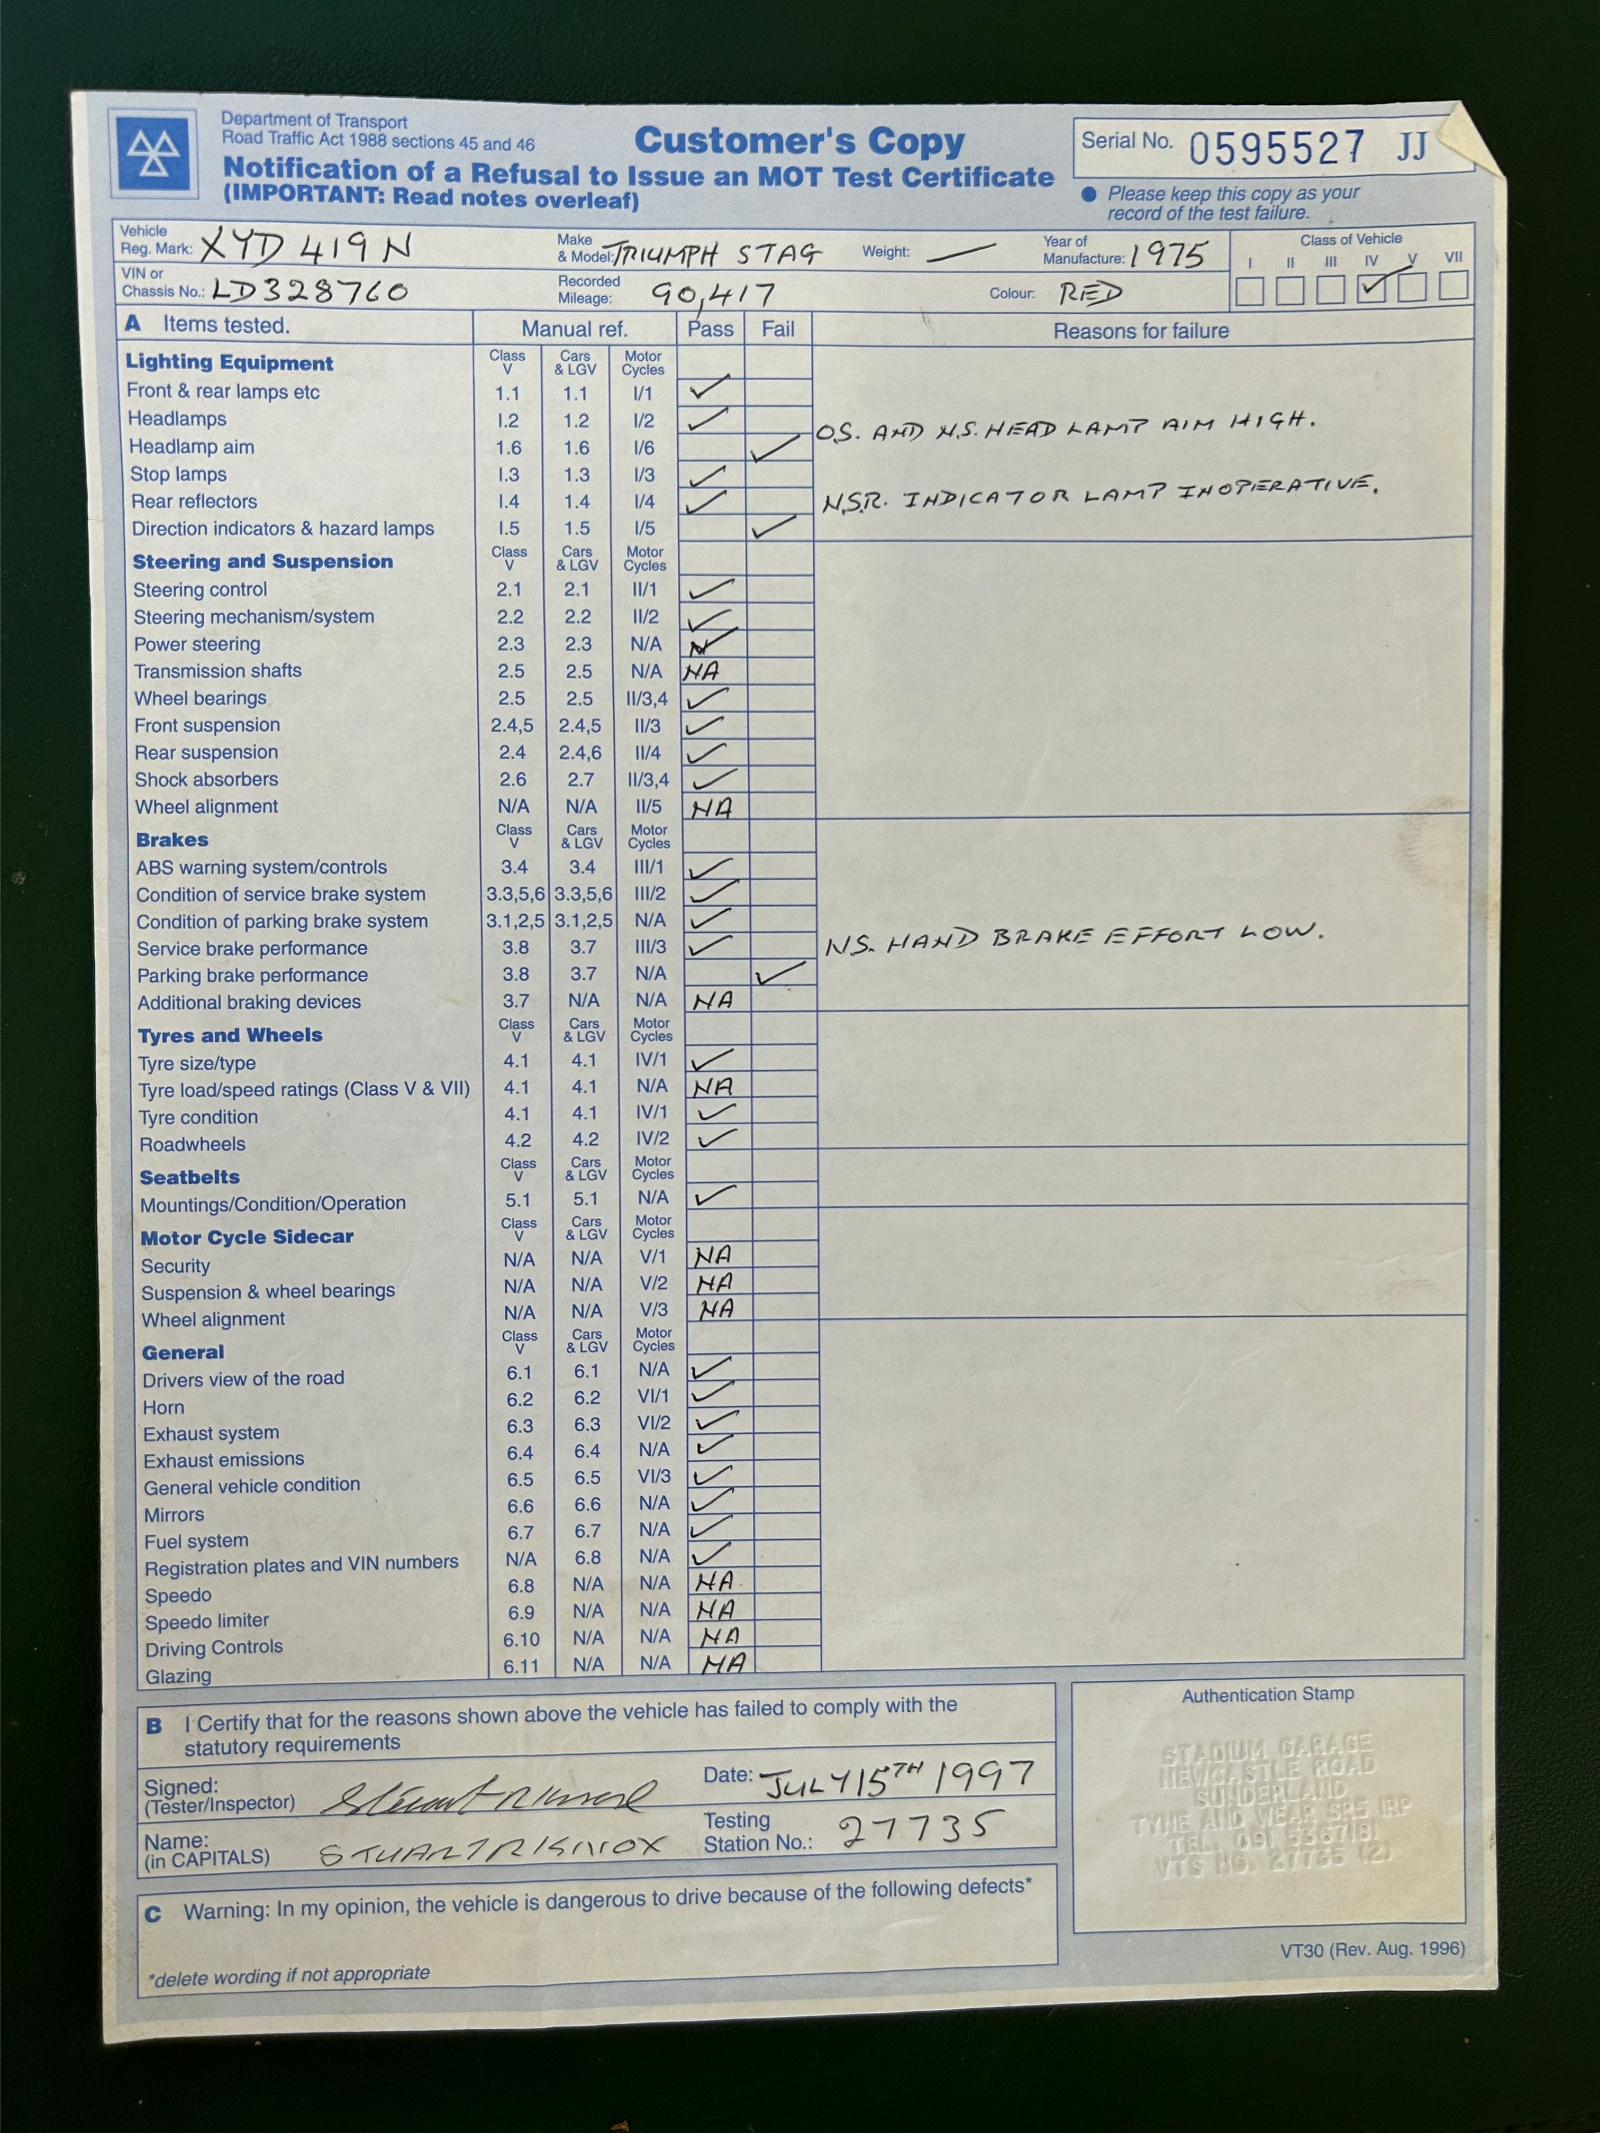 Department of Transport
Road Traffic Act 1988 sections 45 and 46
Customer's Copy
Notification of a Refusal to Issue an MOT Test Certificate
(IMPORTANT: Read notes overleaf)
Serial No. 0595527 JJ
● Please keep this copy as your
record of the test failure.
Vehicle Reg. Mark: XYD 419N Make & Model: TRIUMPH STAG Weight: — Year of Manufacture: 1975
Class of Vehicle
I II III IV V VII
✓
VIN or Chassis No.: LD328760 Recorded Mileage: 90,417 Colour: RED
A Items tested. Manual ref. Pass Fail Reasons for failure
Lighting Equipment Class V Cars & LGV Motor Cycles
Front & rear lamps etc 1.1 1.1 I/1 ✓
Headlamps I.2 1.2 I/2 ✓
O.S. AND N.S. HEAD LAMP AIM HIGH.
Headlamp aim 1.6 1.6 I/6 ✓
Stop lamps I.3 1.3 I/3 ✓
Rear reflectors I.4 1.4 I/4 ✓
N.S.R. INDICATOR LAMP INOPERATIVE.
Direction indicators & hazard lamps I.5 1.5 I/5 ✓
Steering and Suspension Class V Cars & LGV Motor Cycles
Steering control 2.1 2.1 II/1 ✓
Steering mechanism/system 2.2 2.2 II/2 ✓
Power steering 2.3 2.3 N/A ✓
Transmission shafts 2.5 2.5 N/A NA
Wheel bearings 2.5 2.5 II/3,4 ✓
Front suspension 2.4,5 2.4,5 II/3 ✓
Rear suspension 2.4 2.4,6 II/4 ✓
Shock absorbers 2.6 2.7 II/3,4 ✓
Wheel alignment N/A N/A II/5 NA
Brakes Class V Cars & LGV Motor Cycles
ABS warning system/controls 3.4 3.4 III/1 ✓
Condition of service brake system 3.3,5,6 3.3,5,6 III/2 ✓
Condition of parking brake system 3.1,2,5 3.1,2,5 N/A ✓
Service brake performance 3.8 3.7 III/3 ✓ N.S. HAND BRAKE EFFORT LOW.
Parking brake performance 3.8 3.7 N/A ✓
Additional braking devices 3.7 N/A N/A NA
Tyres and Wheels Class V Cars & LGV Motor Cycles
Tyre size/type 4.1 4.1 IV/1 ✓
Tyre load/speed ratings (Class V & VII) 4.1 4.1 N/A NA
Tyre condition 4.1 4.1 IV/1 ✓
Roadwheels 4.2 4.2 IV/2 ✓
Seatbelts Class V Cars & LGV Motor Cycles
Mountings/Condition/Operation 5.1 5.1 N/A ✓
Motor Cycle Sidecar Class V Cars & LGV Motor Cycles
Security N/A N/A V/1 NA
Suspension & wheel bearings N/A N/A V/2 NA
Wheel alignment N/A N/A V/3 NA
General Class V Cars & LGV Motor Cycles
Drivers view of the road 6.1 6.1 N/A ✓
Horn 6.2 6.2 VI/1 ✓
Exhaust system 6.3 6.3 VI/2 ✓
Exhaust emissions 6.4 6.4 N/A ✓
General vehicle condition 6.5 6.5 VI/3 ✓
Mirrors 6.6 6.6 N/A ✓
Fuel system 6.7 6.7 N/A ✓
Registration plates and VIN numbers N/A 6.8 N/A ✓
Speedo 6.8 N/A N/A NA
Speedo limiter 6.9 N/A N/A NA
Driving Controls 6.10 N/A N/A NA
Glazing 6.11 N/A N/A NA
B I Certify that for the reasons shown above the vehicle has failed to comply with the
statutory requirements
Signed: (Tester/Inspector) Date: JULY 15TH 1997
Name: (in CAPITALS) STUART R KNOX Testing Station No.: 27735
C Warning: In my opinion, the vehicle is dangerous to drive because of the following defects*
*delete wording if not appropriate
Authentication Stamp
STADIUM GARAGE
NEWCASTLE ROAD
SUNDERLAND
TYNE AND WEAR SR5 1RP
TEL. 091 5367181
VTS NO. 27735 (2)
VT30 (Rev. Aug. 1996)